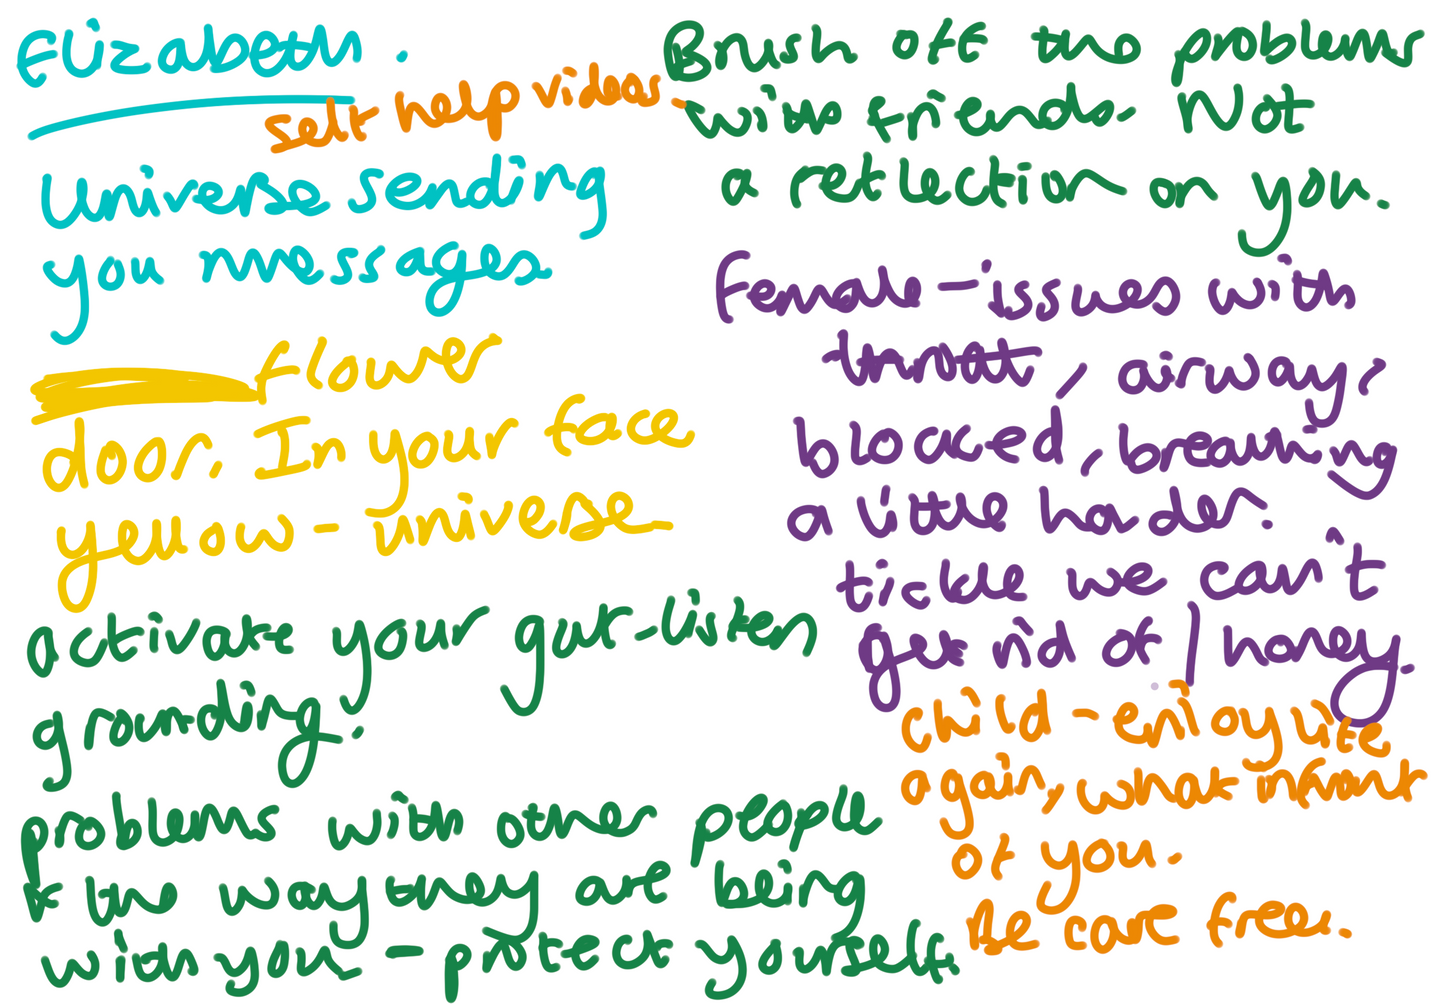 Elizabeth.
self help videos.
Universe sending
you messages
flower
door. In your face
yellow - universe
activate your gut - listen
grounding.
problems with other people
& the way they are being
with you - protect yourself.
Brush off the problems
with friends. Not
a reflection on you.
Female - issues with
throat, airway,
blocked, breathing
a little harder.
tickle we can't
get rid of / honey.
child - enjoy life
again, what infront
of you.
Be care free.